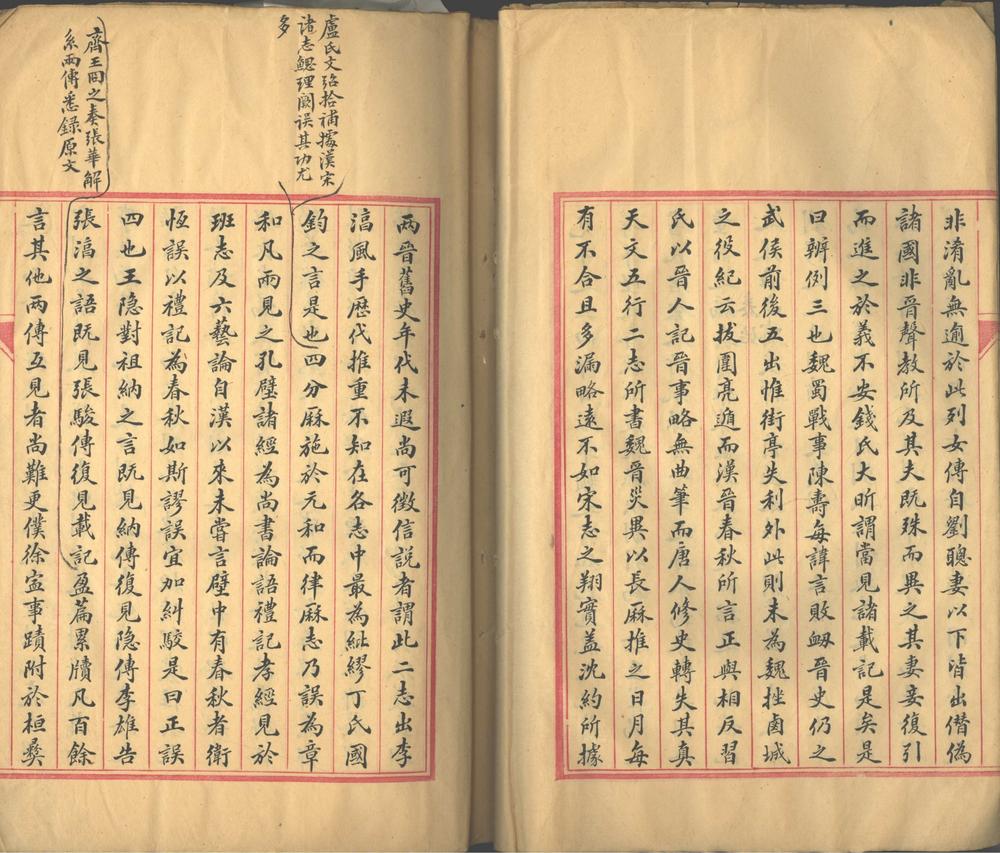 非淆亂無逾於此列女傳自劉聰妻以下皆出僭偽
諸國非晉聲教所及其夫既殊而異之其妻妾復引
而進之於義不安錢氏大昕謂當見諸載記是矣是
曰辨例三也魏蜀戰事陳壽每諱言敗衂晉史仍之
武侯前後五出惟街亭失利外此則未為魏挫鹵城
之役紀云拔圍亮遁而漢晉春秋所言正與相反習
氏以晉人記晉事略無曲筆而唐人修史轉失其真
天文五行二志所書魏晉災異以長厤推之日月每
有不合且多漏略遠不如宋志之翔實蓋沈約所據
兩晉舊史年代未遐尚可徵信說者謂此二志出李
淳風手歷代推重不知在各志中最為紕繆丁氏國
鈞之言是也四分厤施於元和而律厤志乃誤為章
和凡兩見之孔壁諸經為尚書論語禮記孝經見於
班志及六藝論自漢以來未嘗言壁中有春秋者衛
恆誤以禮記為春秋如斯謬誤宜加糾駮是曰正誤
四也王隐對祖納之言既見納傳復見隐傳李雄告
張淳之語既見張駿傳復見載記盈篇累牘凡百餘
言其他兩傳互見者尚難更僕徐寍事蹟附於桓彝
盧氏文弨拾補據漢宋
諸志鰓理闕誤其功尤
多
齊王冏之奏張華解
系兩傳悉錄原文